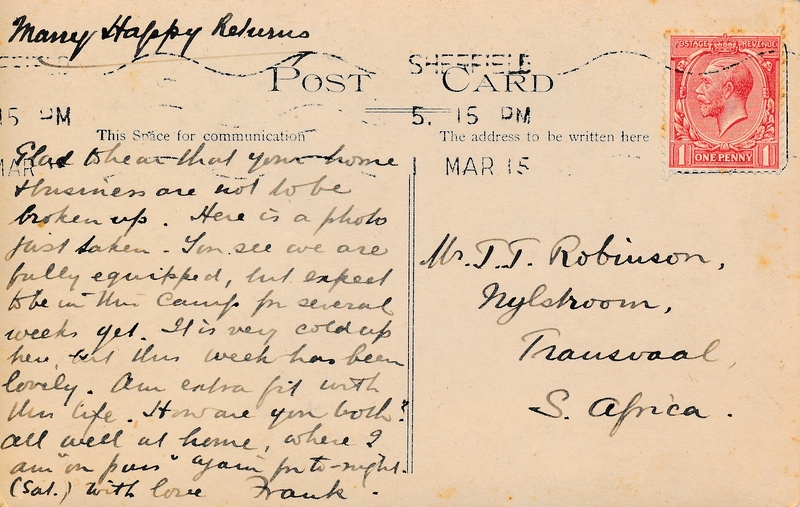 Many Happy Returns
SHEFFIELD
POST CARD
15 PM
5. 15 PM
This Space for communication
The address to be written here
MAR
MAR 15
POSTAGE REVENUE
1 ONE PENNY 1
Glad to hear that your home
& business are not to be
broken up. Here is a photo
just taken. You see we are
fully equipped, but expect
to be in this camp for several
weeks yet. It is very cold up
here, but this week has been
lovely. Am extra fit with
this life. How are you both?
All well at home, where I
am "on pass" again for to-night.
(Sat.) With love Frank.
Mr. T. T. Robinson,
Nylstroom,
Transvaal,
S. Africa.